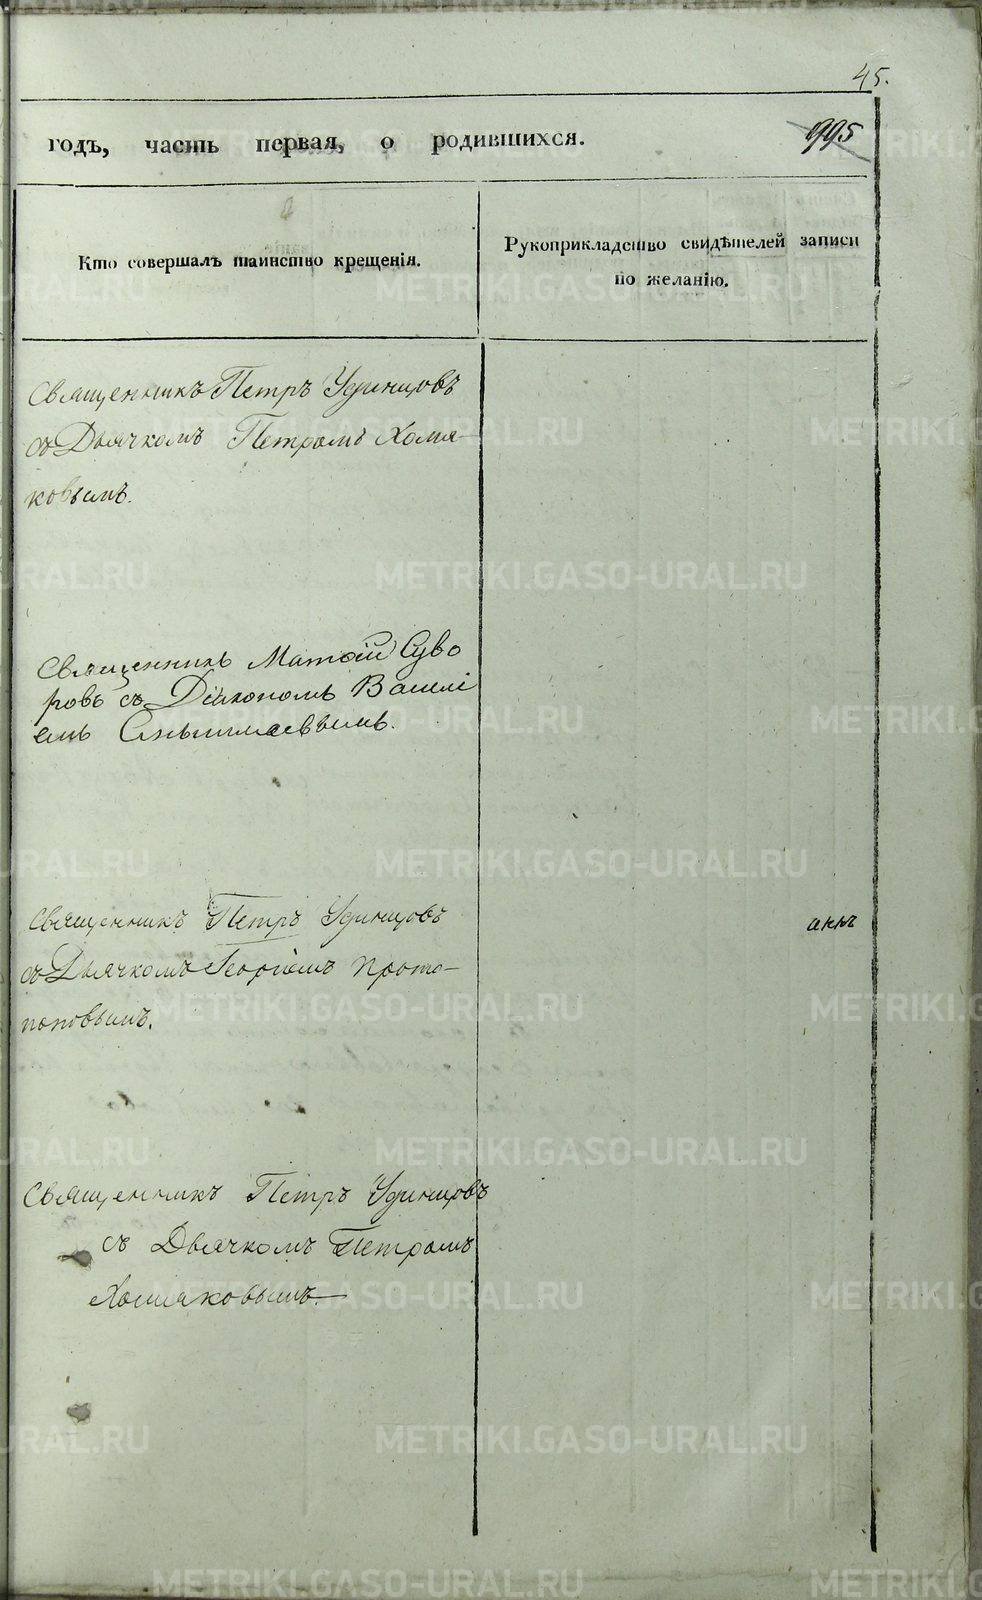 45.
годъ, часть первая, о родившихся.
995
Кто совершалъ таинство крещенія.
Рукоприкладство свидѣтелей записи
по желанію.
Священникъ Петръ Удинцовъ
съ Дьячкомъ Петромъ Хомя-
ковымъ.
Священникъ Матѳій Суво
ровъ съ Діакономъ Василі
емъ
Священникъ Петръ Удинцовъ
съ Дьячкомъ Георгіемъ Прото-
поповымъ.
Священникъ Петръ Удинцовъ
съ Дьячкомъ Петромъ
Хомяковымъ.
METRIKI.GASO-URAL.RU